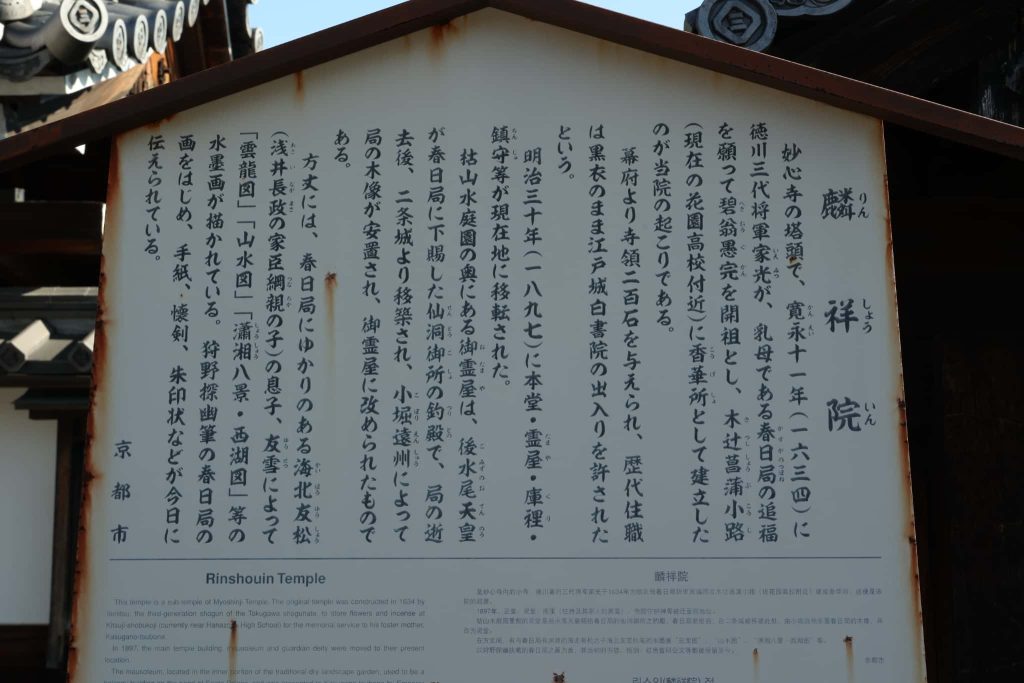 麟祥院
りんしょういん
妙心寺の塔頭で、寛永十一年（一六三四）に
徳川三代将軍家光が、乳母である春日局の追福
を願って碧翁愚完を開祖とし、木辻菖蒲小路
（現在の花園高校付近）に香華所として建立した
のが当院の起こりである。
幕府より寺領二百石を与えられ、歴代住職
は黒衣のまま江戸城白書院の出入りを許された
という。
明治三十年（一八九七）に本堂・霊屋・庫裡・
鎮守等が現在地に移転された。
枯山水庭園の奥にある御霊屋は、後水尾天皇
が春日局に下賜した仙洞御所の釣殿で、局の逝
去後、二条城より移築され、小堀遠州によって
局の木像が安置され、御霊屋に改められたもので
ある。
方丈には、春日局にゆかりのある海北友松
（浅井長政の家臣綱親の子）の息子、友雪によって
「雲龍図」「山水図」「瀟湘八景・西湖図」等の
水墨画が描かれている。狩野探幽筆の春日局の
画をはじめ、手紙、懐剣、朱印状などが今日に
伝えられている。
京都市
Rinshouin Temple
This temple is a sub-temple of Myoshinji Temple. The original temple was constructed in 1634 by
Iemitsu, the third-generation shogun of the Tokugawa shogunate, to store flowers and incense at
Kitsuji-shobukoji (currently near Hanazono High School) for the memorial service to his foster mother,
Kasugano-tsubone.
In 1897, the main temple building, mausoleum and guardian deity were moved to their present
location.
The mausoleum, located in the inner portion of the traditional dry landscape garden, used to be a
麟祥院
京都市